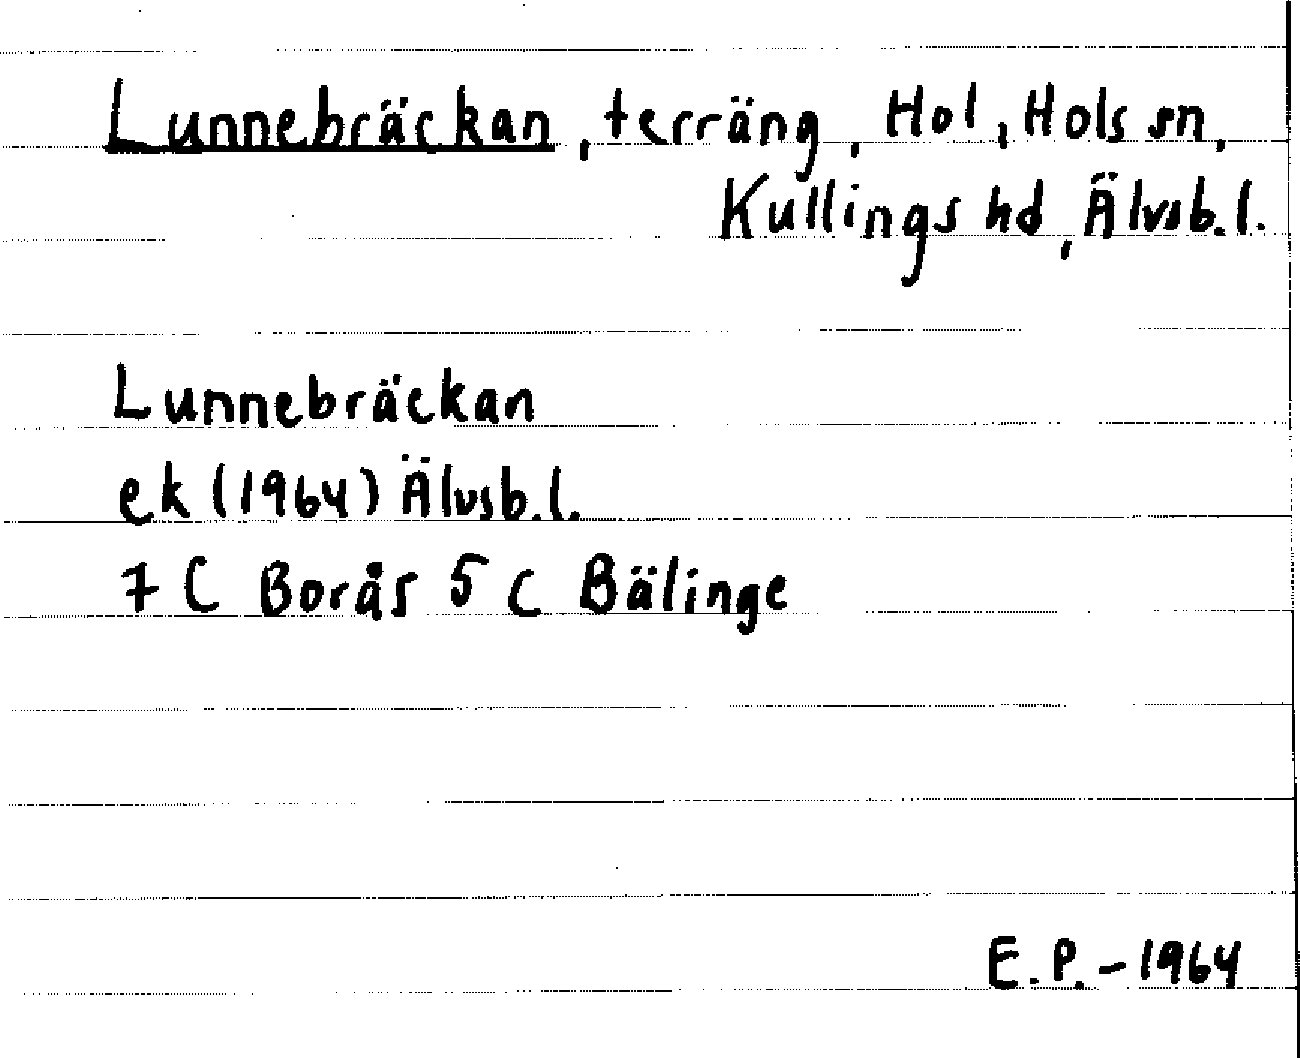 Lunnebräckan, terräng, Hol, Hols sn,
Kullings hd, Älvsb.l.
Lunnebräckan
ek (1964) Älvsb.l.
7 C Borås 5 c Bälinge
E.P.-1964